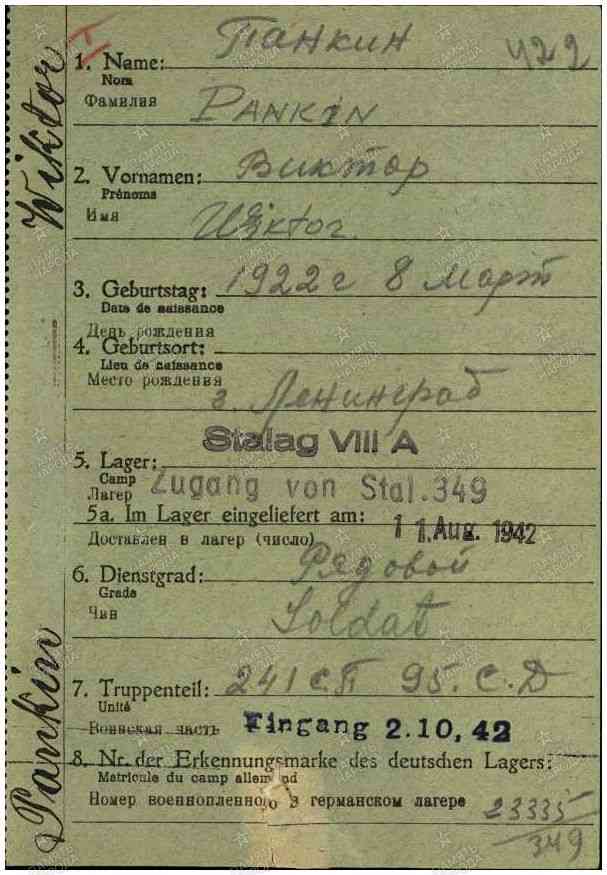 Панкин
422
I
1. Name:
Nom
Фамилия
PANKIN
2. Vornamen: Виктор
Prénoms
Имя
Wiktor.
3. Geburtstag: 1922 г 8 Март
Date de naissance
День рождения
4. Geburtsort:
Lieu de naissance
Место рождения
г. Ленинград
Stalag VIII A
5. Lager:
Camp
Лагер
Zugang von Stal. 349
5a. Im Lager eingeliefert am:
Доставлен в лагер (число)
1 1. Aug. 1942
6. Dienstgrad: Рядовой
Grade
Чин
Soldat
7. Truppenteil: 241 с.П 95. С. Д
Unité
Воинская часть
Eingang 2.10, 42
8. Nr. der Erkennungsmarke des deutschen Lagers:
Matricule du camp allemand
Номер военнопленного в германском лагере
23335
349
Pankin Wiktor